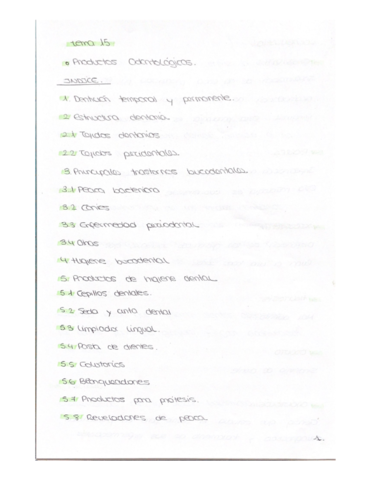 tema 15
Productos Odontológicos.
INDICE
1 Dentición temporal y permanente.
2 Estructura dentaria.
2.1 Tejidos dentarios
2.2 Tejidos periodontales
3 Principales trastornos bucodentales
3.1 Placa bacteriana
3.2 Caries
3.3 Enfermedad periodontal
3.4 Otros
4 Higiene bucodental
5 Productos de higiene dental
5.1 Cepillos dentales.
5.2 Seda y cinta dental
5.3 Limpiador lingual.
5.4 Pasta de dientes.
5.5 Colutorios
5.6 Blanqueadores
5.7 Productos para prótesis.
5.8 Reveladores de placa.
1.